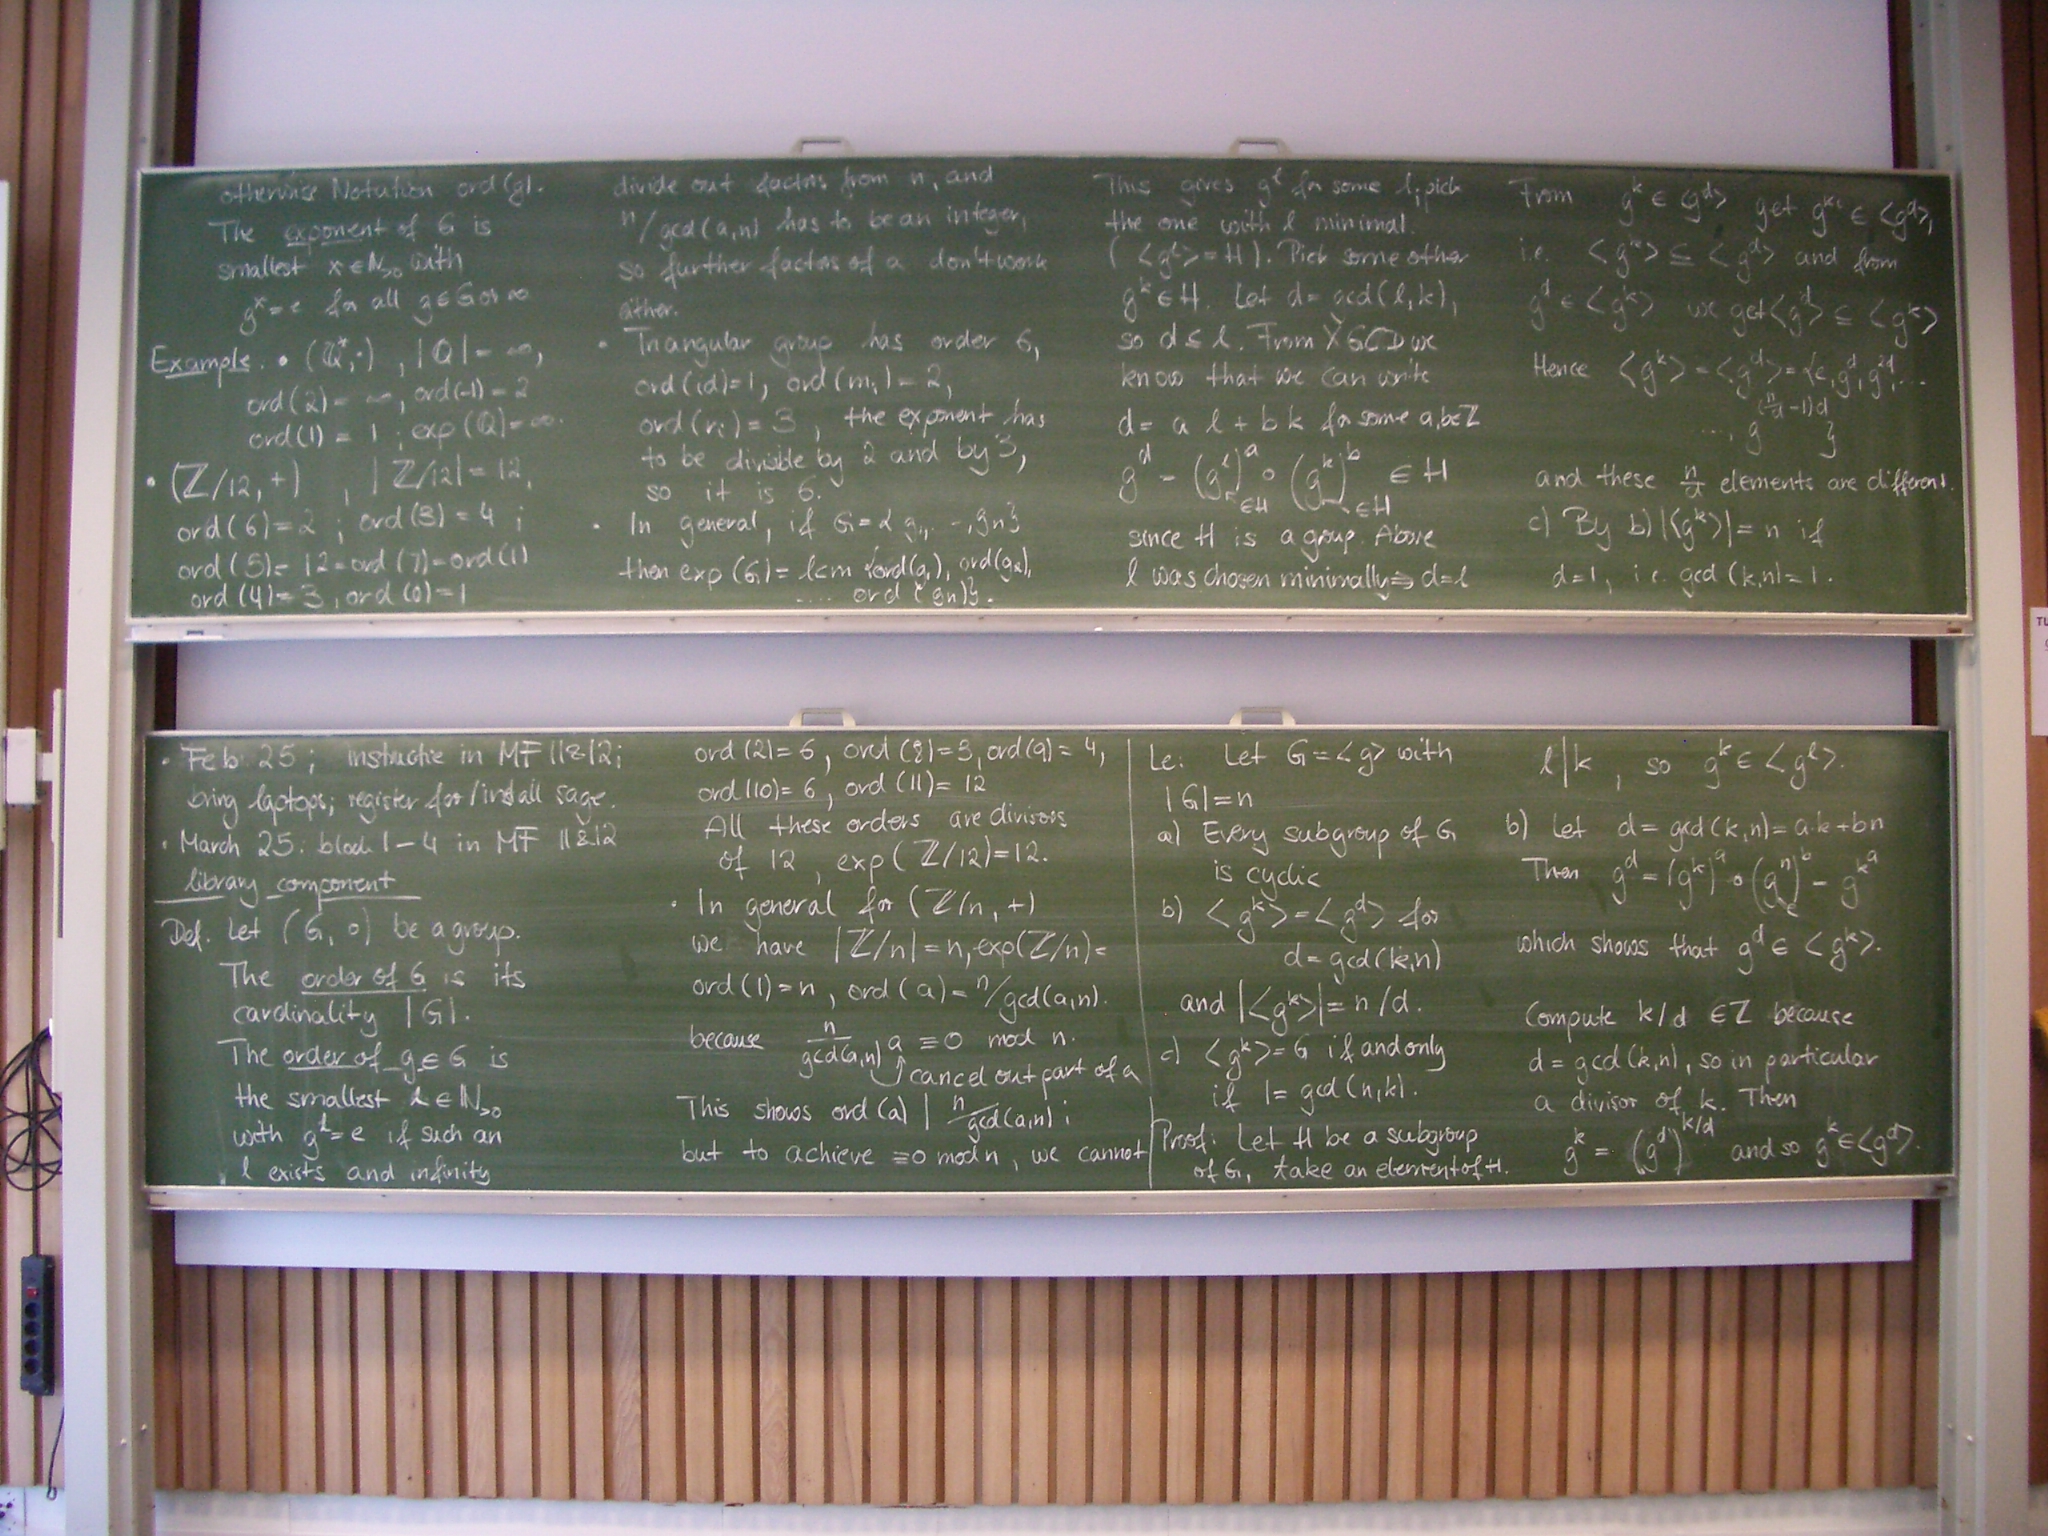 otherwise Notation ord(g).
The exponent of G is
smallest x∈ℕ>0 with
g^x = e for all g∈G or ∞
Example. • (ℚ*,·), |ℚ| = ∞,
ord(2) = ∞, ord(-1) = 2
ord(1) = 1; exp(ℚ) = ∞.
• (ℤ/12, +), |ℤ/12| = 12,
ord(6) = 2; ord(3) = 4;
ord(5) = 12 = ord(7) = ord(1)
ord(4) = 3, ord(0) = 1
divide out factors from n, and
n/gcd(a,n) has to be an integer,
so further factors of a don't work
either.
• Triangular group has order 6,
ord(id)=1, ord(mᵢ) = 2,
ord(rᵢ) = 3, the exponent has
to be divisible by 2 and by 3,
so it is 6.
• In general, if G = {g₁, …, gₙ}
then exp(G) = lcm {ord(g₁), ord(g₂),
.... ord(gₙ)}.
This gives g^ℓ for some ℓ; pick
the one with ℓ minimal.
(<g^ℓ> = H). Pick some other
g^k ∈ H. Let d = gcd(ℓ,k),
so d ≤ ℓ. From XGCD we
know that we can write
d = a ℓ + b k for some a,b∈ℤ
g^d = (g^ℓ)^a ∘ (g^k)^b ∈ H
∈H ∈H
since H is a group. Above
ℓ was chosen minimally ⇒ d=ℓ
From g^k ∈ <g^d> get g^ki ∈ <g^d>,
i.e. <g^k> ⊆ <g^d> and from
g^d ∈ <g^k> we get <g^d> ⊆ <g^k>
Hence <g^k> = <g^d> = {e, g^d, g^2d, ...
..., g^(n/d -1)d }
and these n/d elements are different.
c) By b) |<g^k>| = n if
d=1, i.e. gcd(k,n)=1.
• Feb 25; instructie in MF 11&12;
bring laptops; register for/install sage.
• March 25: block 1-4 in MF 11&12
library component
Def. Let (G, ∘) be a group.
The order of G is its
cardinality |G|.
The order of g∈G is
the smallest ℓ∈ℕ>0
with g^ℓ = e if such an
ℓ exists and infinity
ord(2) = 6, ord(8) = 3, ord(9) = 4,
ord(10) = 6, ord(11) = 12
All these orders are divisors
of 12, exp(ℤ/12) = 12.
• In general for (ℤ/n, +)
we have |ℤ/n| = n, exp(ℤ/n) =
ord(1) = n, ord(a) = n/gcd(a,n).
because n/gcd(a,n) a ≡ 0 mod n.
cancel out part of a
This shows ord(a) | n/gcd(a,n);
but to achieve ≡0 mod n, we cannot
Le: Let G = <g> with
|G| = n
a) Every subgroup of G
is cyclic
b) <g^k> = <g^d> for
d = gcd(k,n)
and |<g^k>| = n/d.
c) <g^k> = G if and only
if 1 = gcd(n,k).
Proof: Let H be a subgroup
of G, take an element of H.
ℓ|k, so g^k ∈ <g^ℓ>.
b) Let d = gcd(k,n) = a·k+bn
Then g^d = (g^k)^a ∘ (g^n)^b = g^k^a
e
which shows that g^d ∈ <g^k>.
Compute k/d ∈ℤ because
d = gcd(k,n), so in particular
a divisor of k. Then
g^k = (g^d)^k/d and so g^k ∈ <g^d>.